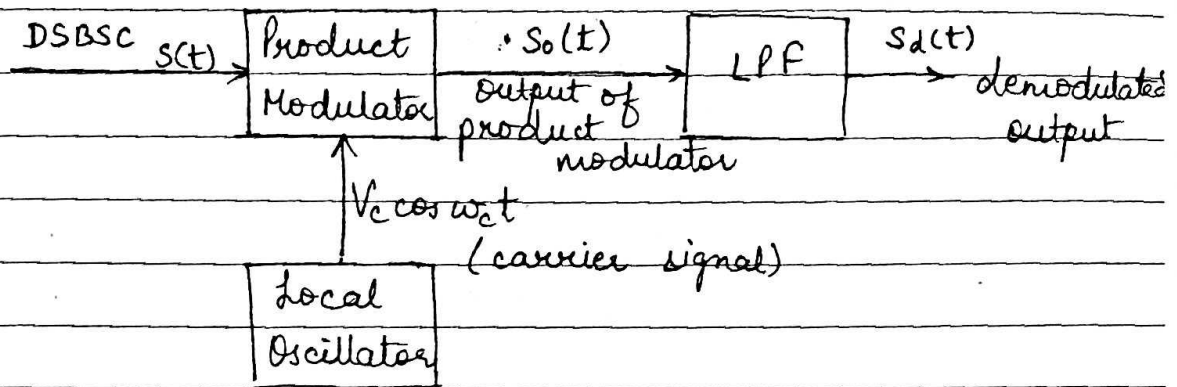 DSBSC S(t)
Product
Modulator
So(t)
output of
product
modulator
LPF
Sd(t)
demodulated
output
Vc cos wct
(carrier signal)
Local
Oscillator